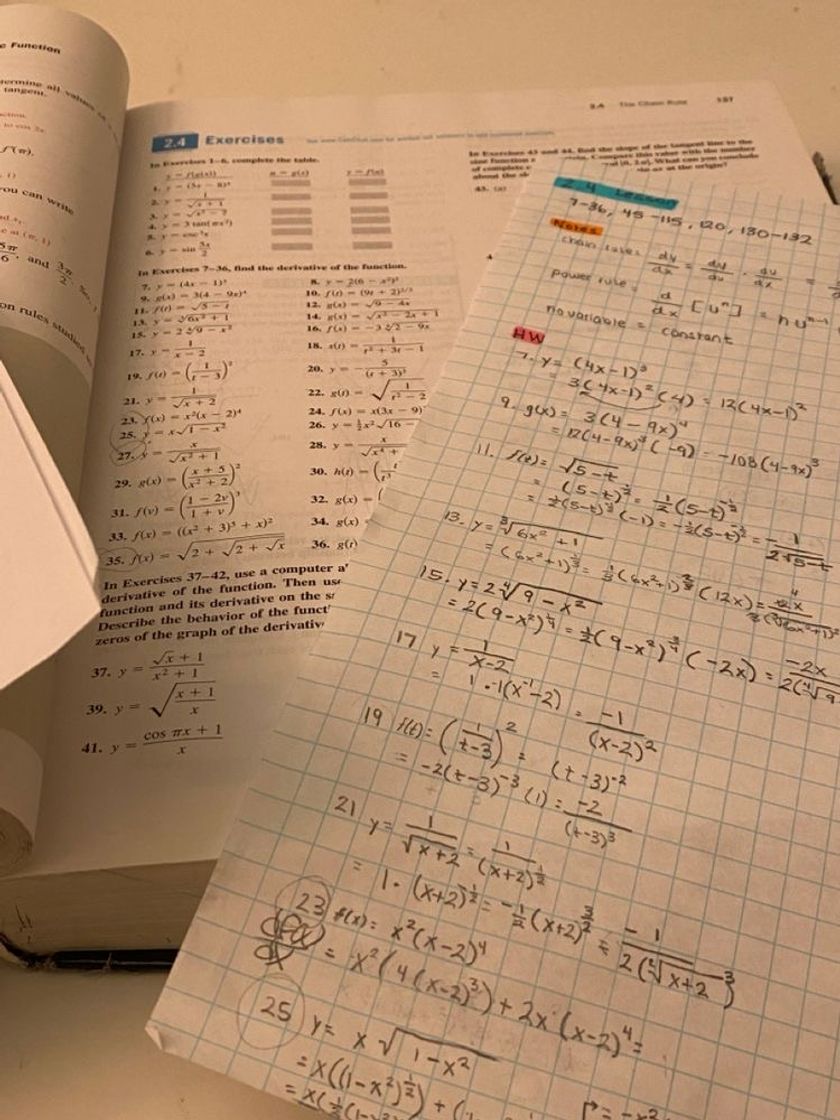 e Function
tangent.
ou can write
and
on rules studied
2.4 The Chain Rule 137
2.4 Exercises
In Exercises 1–6, complete the table.
y = f(g(x)) u = g(x) y = f(u)
1. y = (5x − 8)⁴
2. y = 1/√(x + 1)
3. y = √(x² − 7)
4. y = 3 tan(πx²)
5. y = csc³x
6. y = sin 5x/2
In Exercises 7–36, find the derivative of the function.
7. y = (4x − 1)³ 8. y = 2(6 − x²)⁵
9. g(x) = 3(4 − 9x)⁴ 10. f(t) = (9t + 2)^(2/3)
11. f(t) = √(5 − t) 12. g(x) = √(9 − 4x)
13. y = ∛(6x² + 1) 14. g(x) = √(x² − 2x + 1)
15. y = 2∜(9 − x²) 16. f(x) = −3∜(2 − 9x)
17. y = 1/(x − 2) 18. s(t) = 1/(t² + 3t − 1)
19. f(t) = (1/(t − 3))² 20. y = 5/(t + 3)³
21. y = 1/√(x + 2) 22. g(t) = √(1/(t² − 2
23. f(x) = x²(x − 2)⁴ 24. f(x) = x(3x − 9)
25. y = x√(1 − x²) 26. y = ½x²√(16 −
27. y = x/√(x² + 1) 28. y = x/√(x⁴ +
29. g(x) = ((x + 5)/(x² + 2))² 30. h(t) = (
31. f(v) = ((1 − 2v)/(1 + v))³ 32. g(x) = (
33. f(x) = ((x² + 3)⁵ + x)² 34. g(x) =
35. f(x) = √(2 + √(2 + √x)) 36. g(t)
In Exercises 37–42, use a computer a
derivative of the function. Then use
function and its derivative on the s
Describe the behavior of the funct
zeros of the graph of the derivativ
37. y = (√x + 1)/(x² + 1)
39. y = √((x + 1)/x)
41. y = (cos πx + 1)/x
In Exercises 43 and 44, find the slope of the tangent line to the
43. (a)
2.4 Lesson
7-36, 45-115, 120, 130-132
Notes
chain rule: dy/dx = dy/du · du/dx =
power rule = d/dx [uⁿ] = nuⁿ⁻¹
no variable = constant
HW
7. y = (4x-1)³
= 3(4x-1)²(4) = 12(4x-1)²
9. g(x) = 3(4-9x)⁴
= 12(4-9x)³(-9) = -108(4-9x)³
11. f(t) = √(5-t)
= (5-t)^½ = ½(5-t)^-½
= ½(5-t)^-½(-1) = -½(5-t)^-½ = -1/(2√(5-t))
13. y = ∛(6x²+1)
= (6x²+1)^⅓ = ⅓(6x²+1)^⅔(12x) =
15. y = 2∜(9-x²)
= 2(9-x²)^¼ = ½(9-x²)^¾(-2x) = -2x/2(∜9
17 y = 1/(x-2)
= 1·-1(x⁻¹-2) = -1/(x-2)²
19 f(t) = (1/(t-3))² = (t-3)⁻²
= -2(t-3)⁻³(1) = -2/(t-3)³
21 y = 1/√(x+2) = 1/(x+2)^½
= 1·(x+2)^-½ = -½(x+2)^3/2 = -1/2(√(x+2))³
23 f(x) = x²(x-2)⁴
= x²(4(x-2)³) + 2x·(x-2)⁴ =
25 y = x√(1-x²)
= x((1-x²)^½) + (
= x(½(1-x²